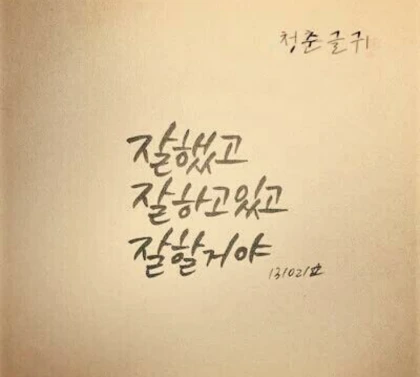 청춘글귀
잘했고
잘하고있고
잘할거야
131021